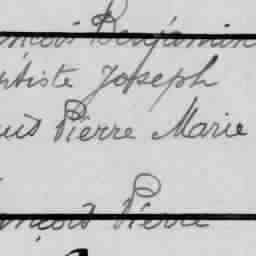 ançois Benjamin
ptiste Joseph
uis Pierre Marie
ançois Pierre